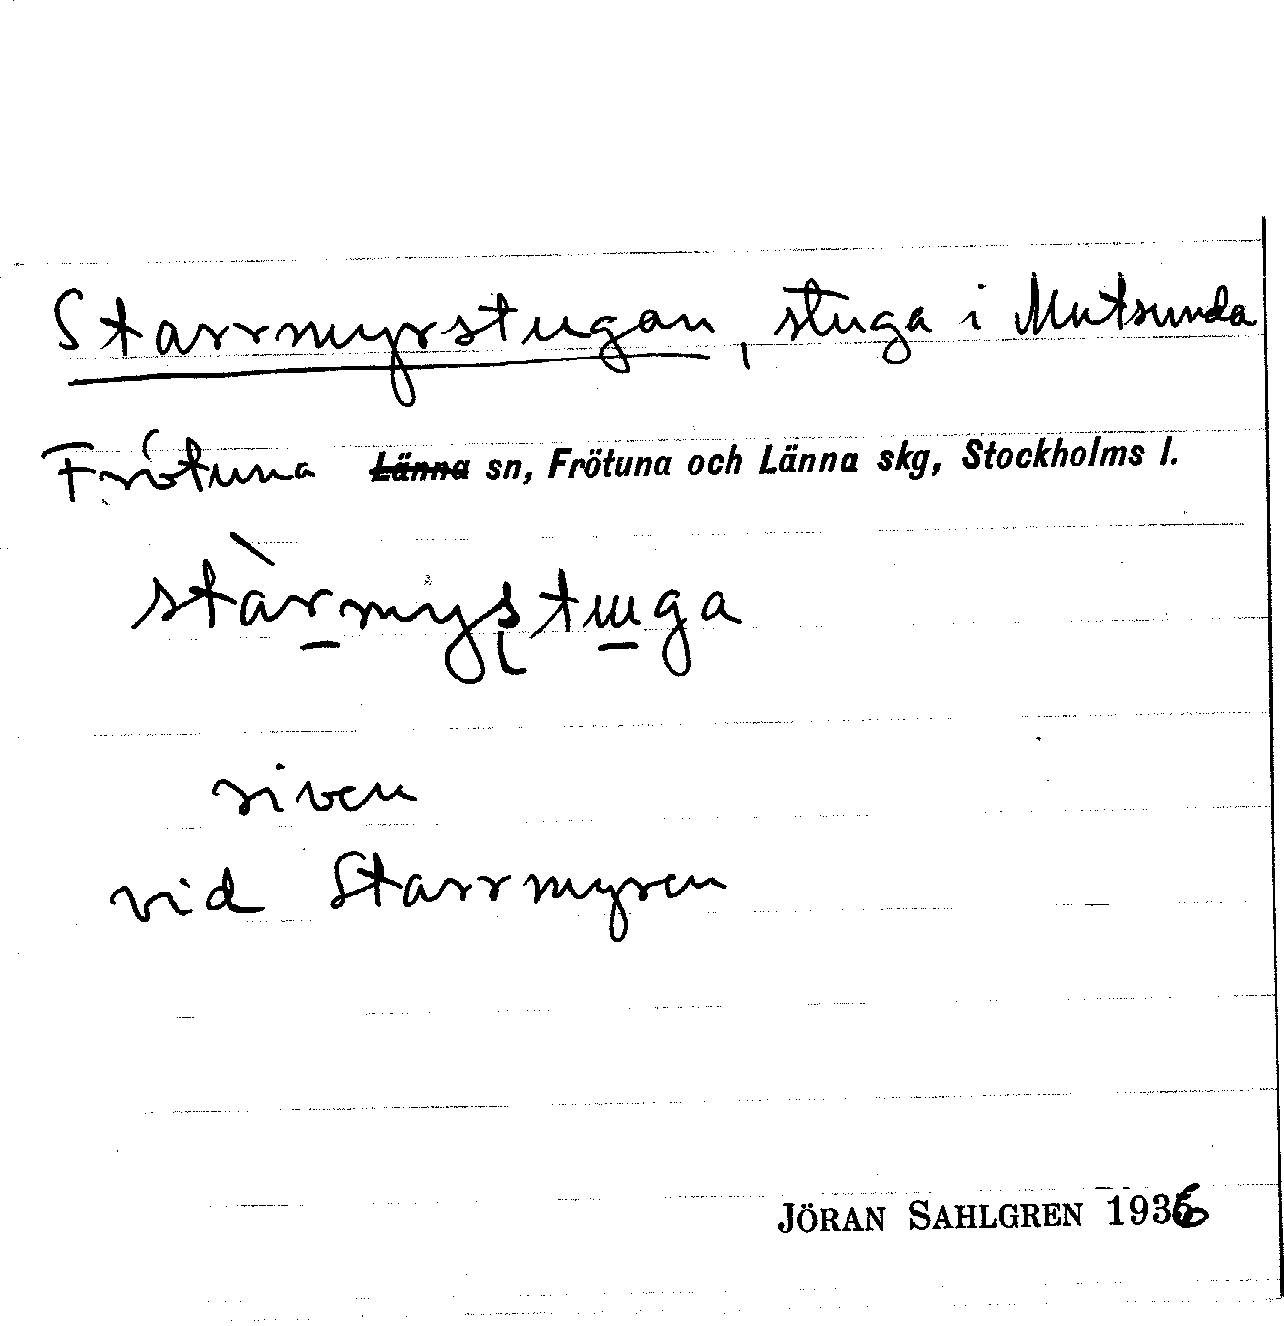 Starrmyrstugan, stuga i Mutsunda
Frötuna Länna sn, Frötuna och Länna skg, Stockholms l.
stàrmyʂtɯga
riven
vid Starrmyren
JÖRAN SAHLGREN 1936